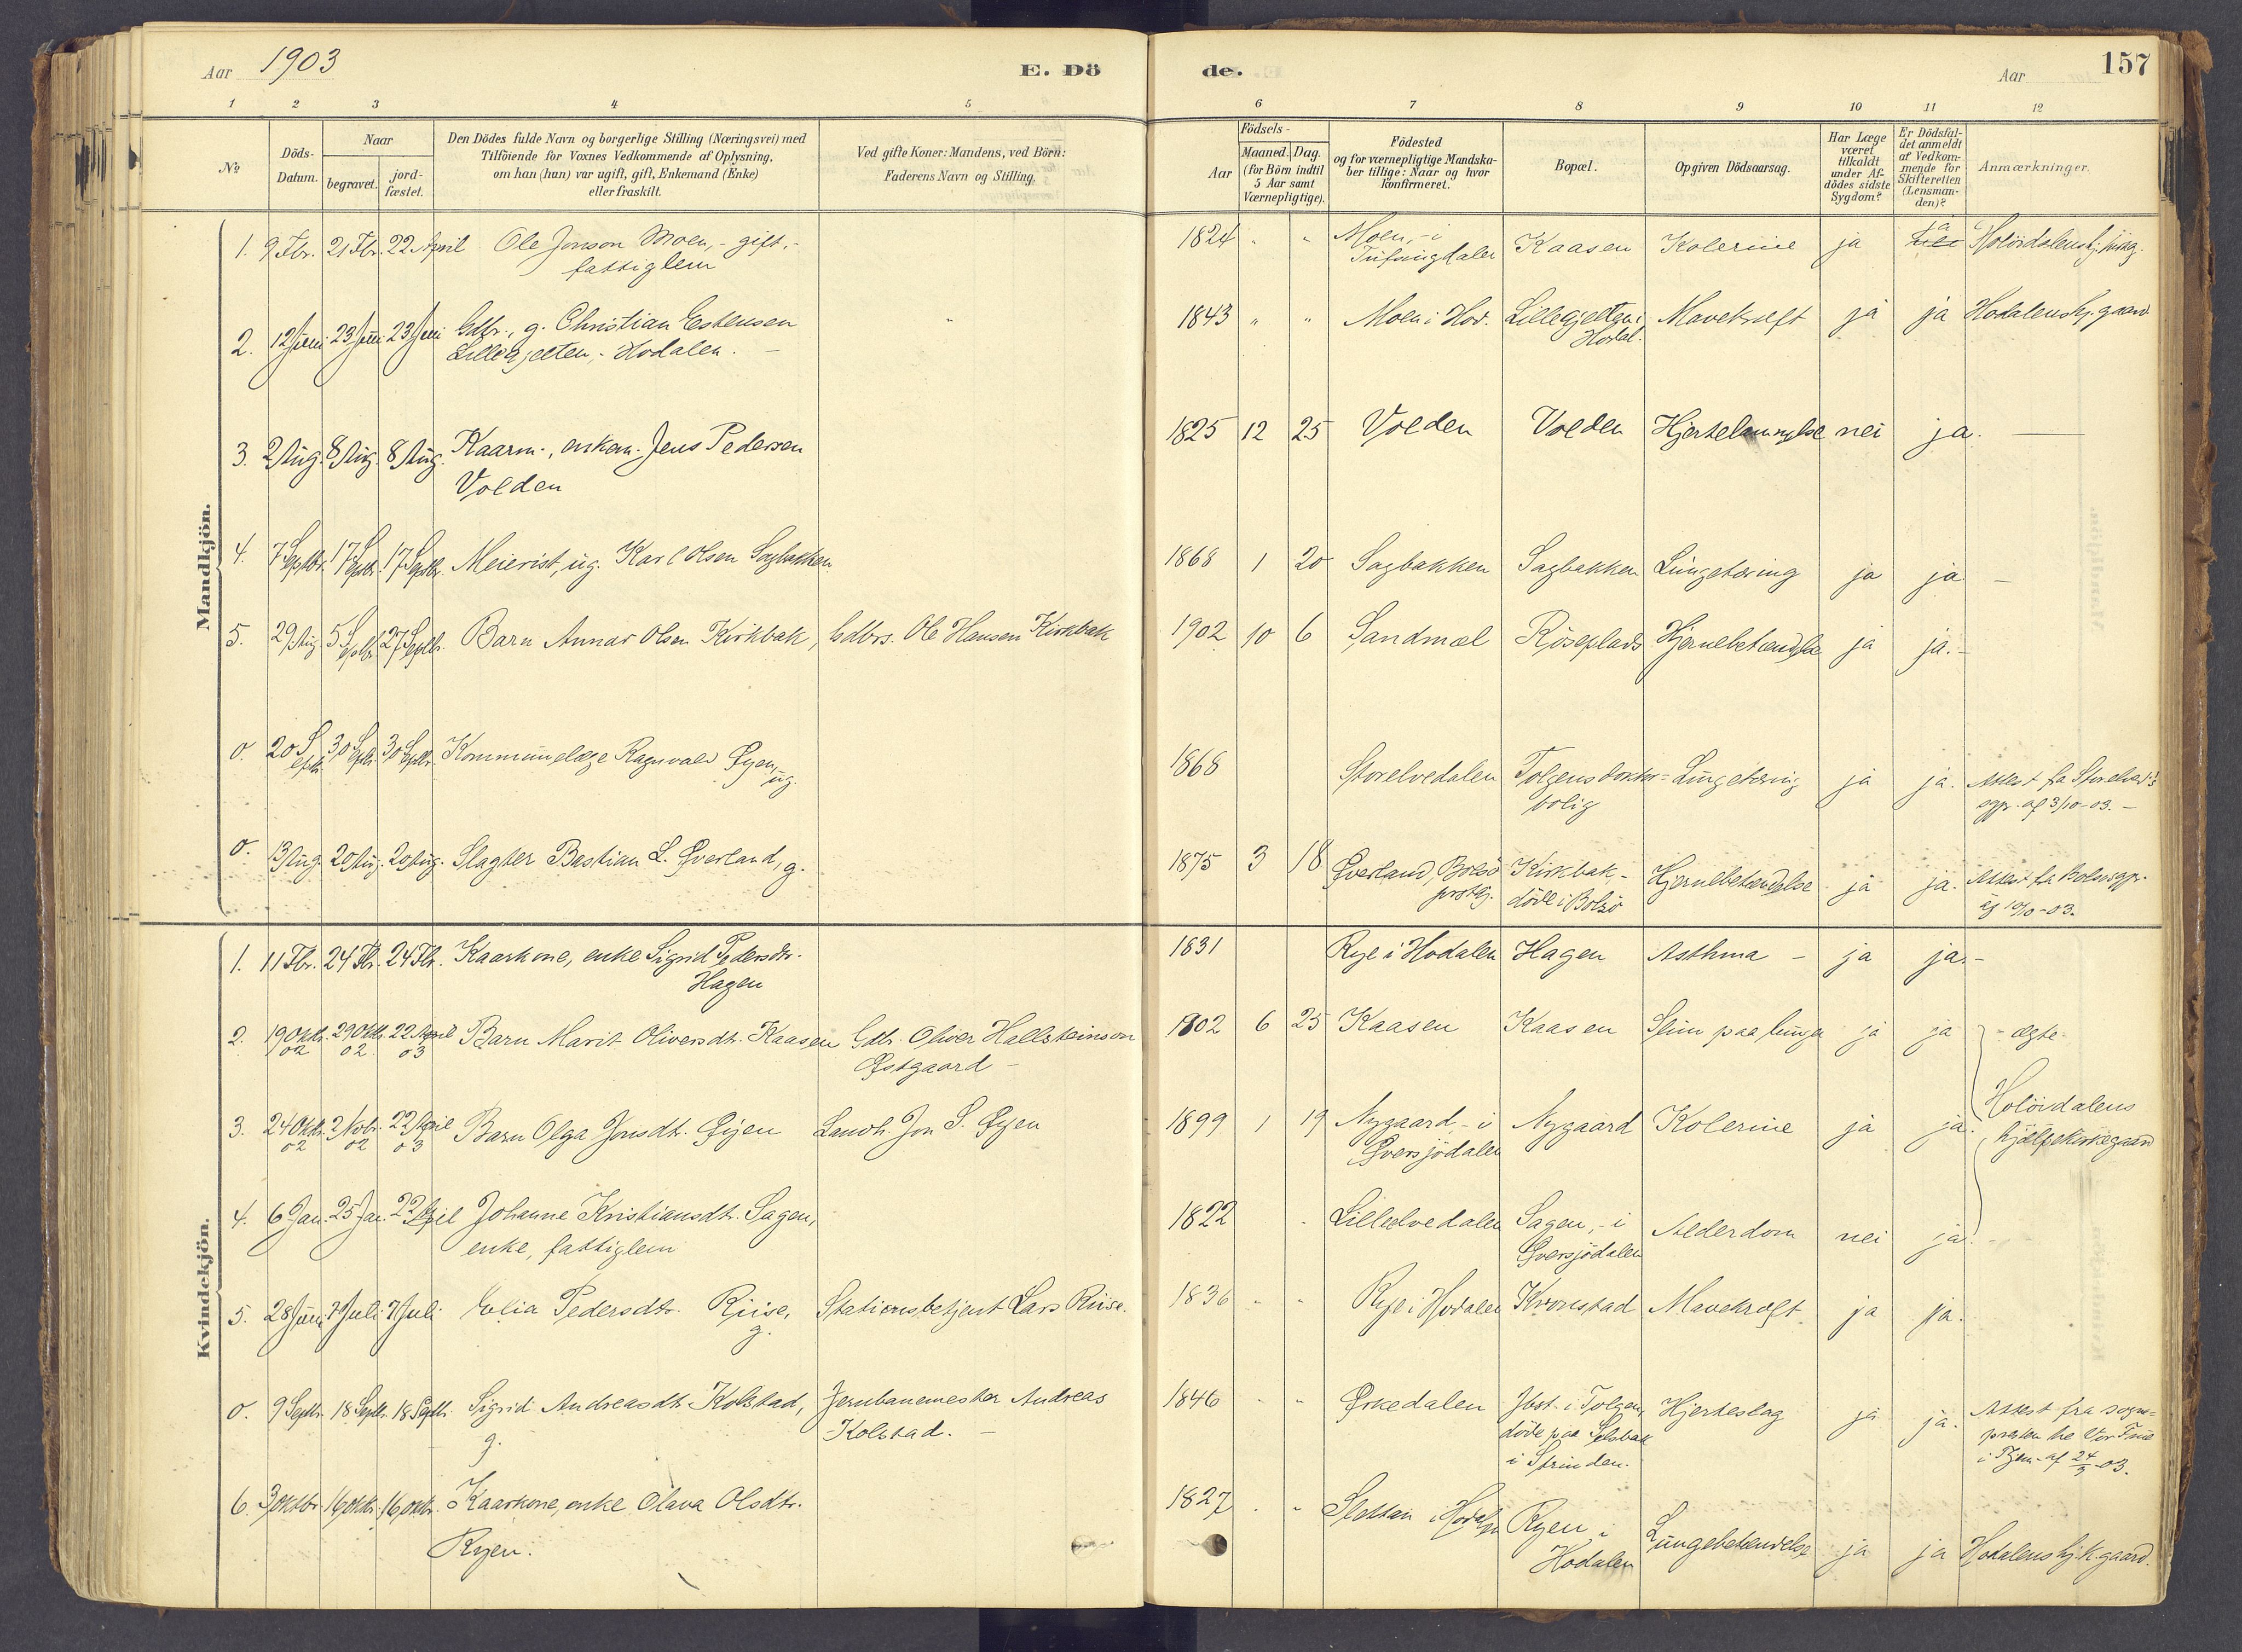 Aar 1903
E. Dö
de.
Aar
157
1 2 3 4 5
6 7 8 9 10 11 12
№
Döds-
Datum.
Naar
begravet.
jord-
fæstet.
Den Dödes fulde Navn og borgerlige Stilling (Næringsvei) med
Tilföiende for Voxnes Vedkommende af Oplysning,
om han (hun) var ugift, gift, Enkemand (Enke)
eller fraskilt.
Ved gifte Koner: Mandens, ved Börn:
Faderens Navn og Stilling.
Aar
Födsels-
Maaned. Dag.
(for Börn indtil
5 Aar samt
Værnepligtige).
Födested
og for værnepligtige Mandska-
ber tillige: Naar og hvor
konfirmeret.
Bopæl.
Opgiven Dödsaarsag.
Har Læge
været
tilkaldt
under Af-
dödes sidste
Sygdom?
Er Dödsfal-
det anmeldt
af Vedkom-
mende for
Skifteretten
(Lensman-
den)?
Anmærkninger.
Mandkjön.
1. 9 Fbr. 21 Fbr. 22 April Ole Jonson Moen, - gift, -
fattiglem
1824 " " Moen, - i
Tufsingdalen
Kaasen Kolerine ja ja
2. 12 Juni 23 Juni 23 Juni Gdbr., g. Christian Estensen
Lillegjelten, - Hodalen. -
1843 " " Moen i Hod. Lillegjelten i
Hodal.
Mavekræft ja ja Hodalens kj. gaard
3. 2 Aug. 8 Aug. 8 Aug. Kaarm., enkem. Jens Pedersen
Volden
1825 12 25 Volden Volden Hjertelammelse nei ja. —
4. 7 Septbr. 17 Septbr. 17 Septbr. Meierist, ug. Karl Olsen Sagbakken
1868 1 20 Sagbakken Sagbakken Lungetæring ja ja —
5. 29 Aug 5 Septbr. 27 Septbr. Barn Annar Olsen Kirkbak, Gdbrs. Ole Hansen Kirkbak
1902 10 6 Sandmæl Röseplads Hjernebetændelse ja ja. -
0. 20 Septbr 30 Septbr. 30 Septbr. Kommunelæge Ragnvald Øyen,
ug.
1868 Storelvedalen Tolgens doktor=
bolig
Lungetæring ja ja. Attest fra Storelved.'s
sgpr. af 3/10-03. -
0. 13 Aug. 20 Aug. 20 Aug. Slagter Bastian L. Øverland, g.
1875 3 18 Øverland, Bolsö
prstgj.
Kirkbak, -
döde i Bolsö
Hjernebetændelse ja ja. Attest fra Bolsö sgpr.
af 10/10-03.
Kvindekjön.
1. 11 Fbr. 24 Fbr. 24 Fbr. Kaarkone, enke Sigrid Pedersdtr.
Hagen
1831 Rye i Hodalen Hagen Asthma - ja ja. -
2. 19 Oktbr. 29 Oktbr. 22 April Barn Marit Oliversdtr. Kaasen Gdbr. Oliver Hallsteinson
02 02 03 Østgaard -
1902 6 25 Kaasen Kaasen Slim paa lunga ja ja - ægte
3. 24 Oktbr. 2 Novbr. 22 April Barn Olga Jonsdtr. Øyen Landh. Jon S. Øyen
02 02 03
1899 1 19 Nygaard, - i
Øversjödalen
Nygaard Kolerine ja ja. Holöidalens
hjælpekirkegaard
4. 6 Jan. 25 Jan. 22 April Johanne Kristiansdtr. Sagen,
enke, fattiglem
1822 Lilleelvedalen Sagen, - i
Øversjödalen
Alderdom nei ja.
5. 28 Juni 7 Juli 7 Juli Elia Pedersdtr. Riise,
g.
Stationsbetjent Lars Riise.
1836 " " Rye i Hodalen Kronstad Mavekræft ja ja.
0. 9 Septbr. 18 Septbr. 18 Septbr. Sigrid Andreasdtr. Kolstad,
g.
Jernbanemester Andreas
Kolstad. -
1846 " " Ørkedalen Jbst. i Tolgen,
döde paa Selsbak
i Strinden.
Hjerteslag ja ja. Attest fra sogne-
presten til Vor Frue
i Tjem. af 24/9-03.
6. 3 oktbr. 16 oktbr. 16 oktbr. Kaarkone, enke Olava Olsdtr.
Ryen.
1827 " " Slettan i Hodalen Ryen i
Hodalen
Lungebetændelse ja ja Hodalens hj. k. gaard.